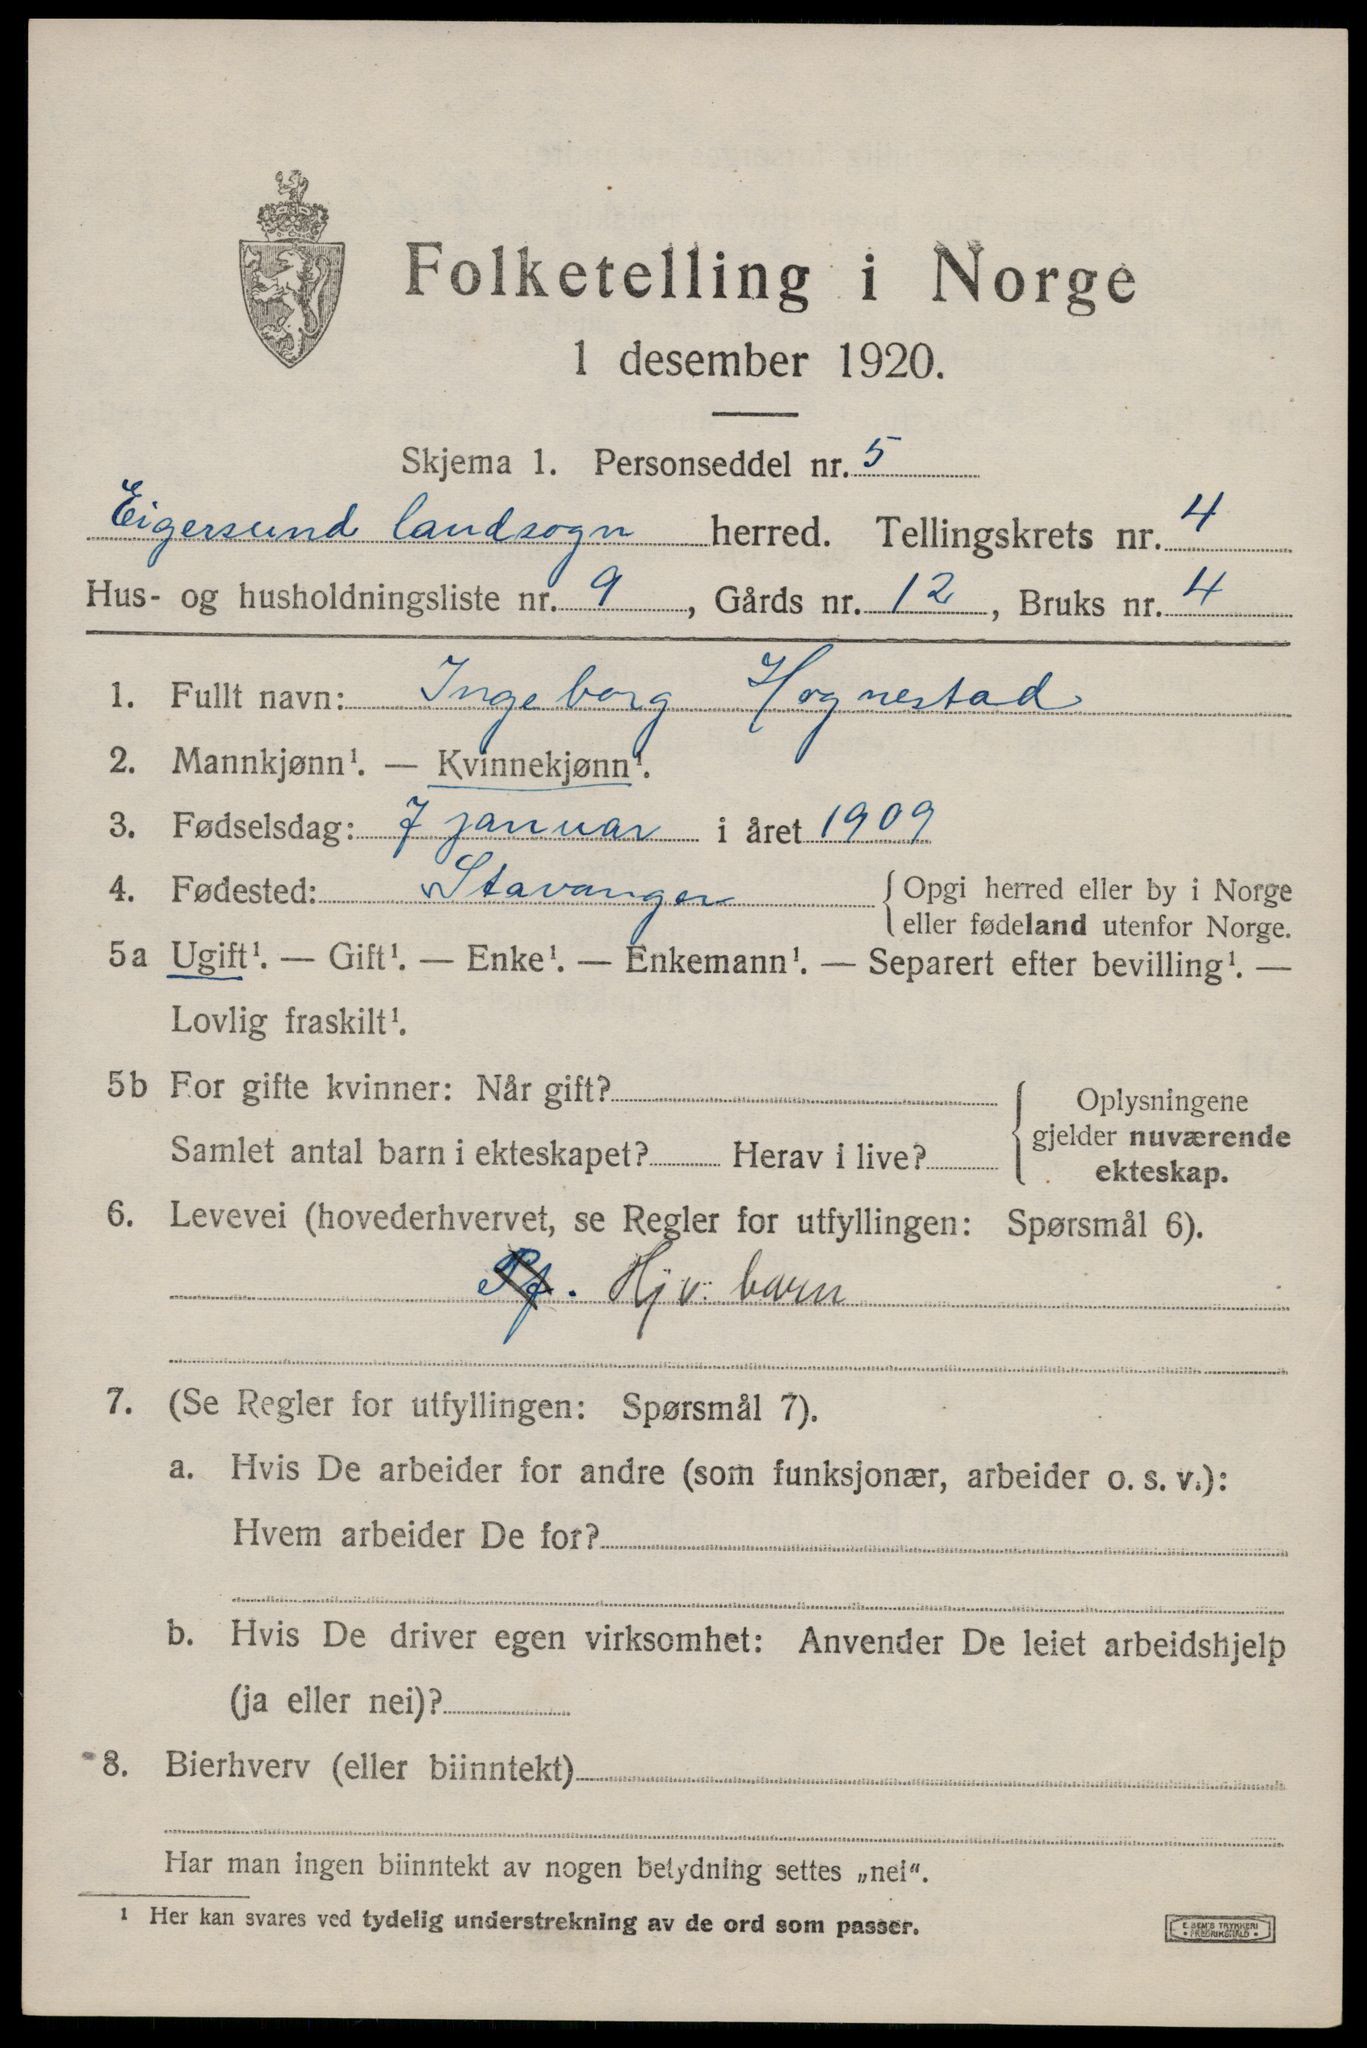 Folketelling i Norge
1 desember 1920.
Skjema 1. Personseddel nr. 5
Eigersund landsogn herred. Tellingskrets nr. 4
Hus- og husholdningsliste nr. 9, Gårds nr. 12, Bruks nr. 4
1. Fullt navn: Ingeborg Hognestad
2. Mannkjønn¹. — Kvinnekjønn¹.
3. Fødselsdag: 7 januar i året 1909
4. Fødested: Stavanger {Opgi herred eller by i Norge
eller fødeland utenfor Norge.
5a Ugift¹. — Gift¹. — Enke¹. — Enkemann¹. — Separert efter bevilling¹. —
Lovlig fraskilt¹.
5b For gifte kvinner: Når gift?
Samlet antal barn i ekteskapet? Herav i live?
Oplysningene
gjelder nuværende
ekteskap.
6. Levevei (hovederhvervet, se Regler for utfyllingen: Spørsmål 6).
Hjv. barn
7. (Se Regler for utfyllingen: Spørsmål 7).
a. Hvis De arbeider for andre (som funksjonær, arbeider o. s. v.):
Hvem arbeider De for?
b. Hvis De driver egen virksomhet: Anvender De leiet arbeidshjelp
(ja eller nei)?
8. Bierhverv (eller biinntekt)
Har man ingen biinntekt av nogen betydning settes „nei“.
¹ Her kan svares ved tydelig understrekning av de ord som passer.
E. SEM'S TRYKKERI
FREDRIKSHALD